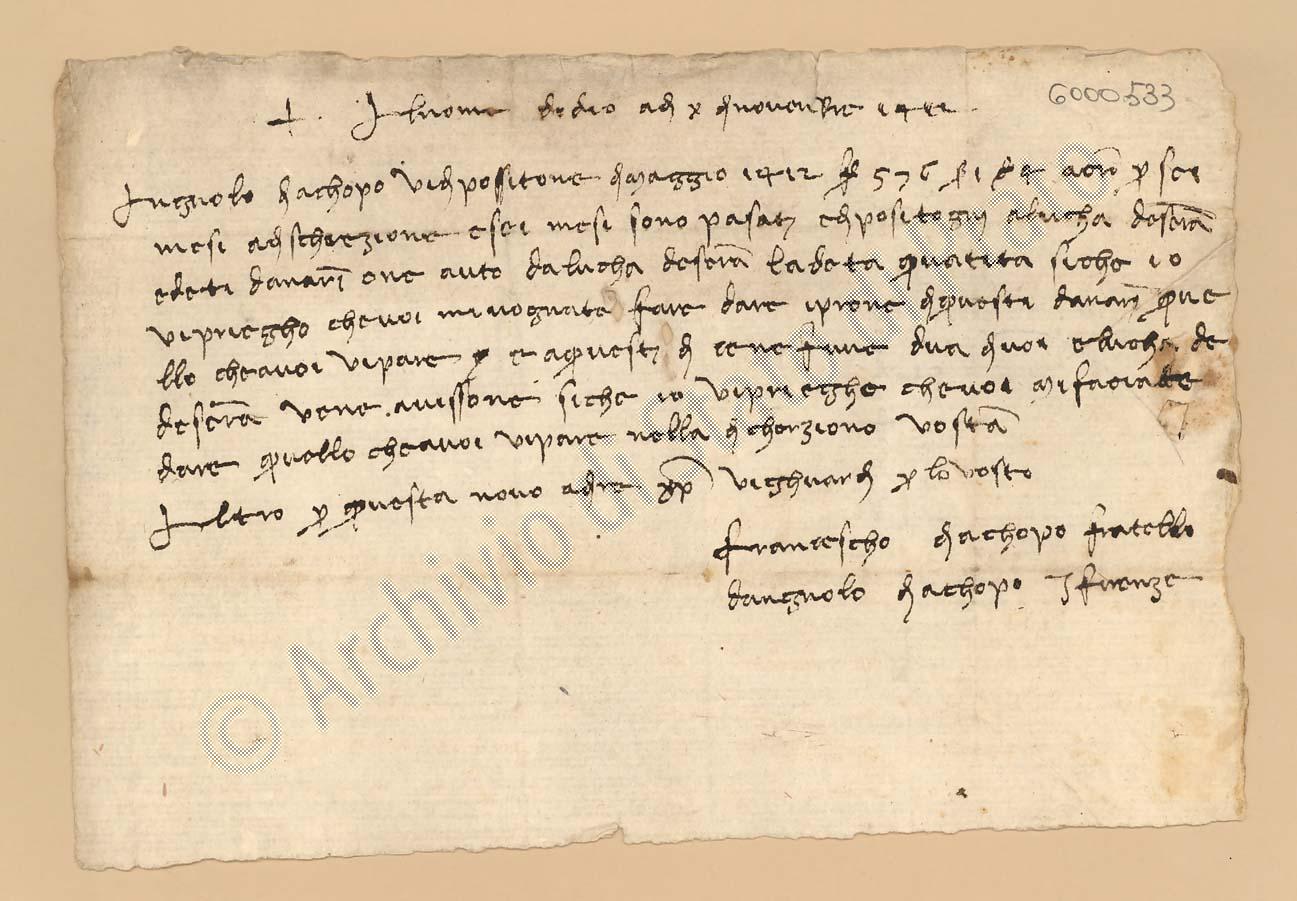 6000.533
+. Al nome di dio adi x di novenbre 1412
Angnolo diachopo vi dipositone di maggio 1412 f 576 s 1 d 4 a oro p sei
mesi a dischrezione e sei mesi sono pasati e dipositogli a lucha de serã
e deti danari one auto da lucha de serã la deta quatita siche io
vi priegho che voi mi vogliate fare dare i prone di questi danari que
llo che a voi vi pare e a questi di ce ne fune dua di voi e lucha de
de serã vene avissone siche io vi prieghe che voi mi faciate
dare quello che a voi vi pare nella discherzione vostã
Altro p questa nono a dire xp̃o vi ghuardi p lo vosto
francescho diachopo fratello
d angnolo diachopo I firenze
© Archivio di Stato di Prato